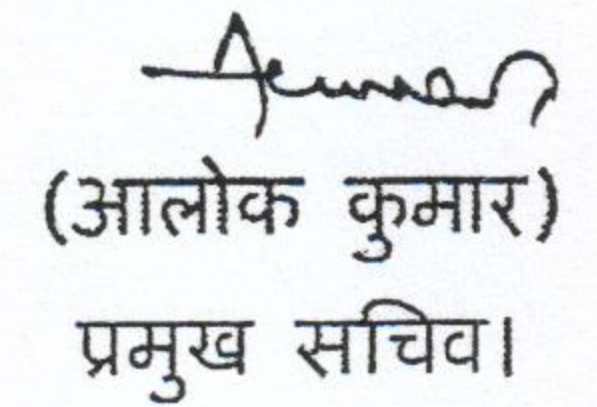 (आलोक कुमार)
प्रमुख सचिव।